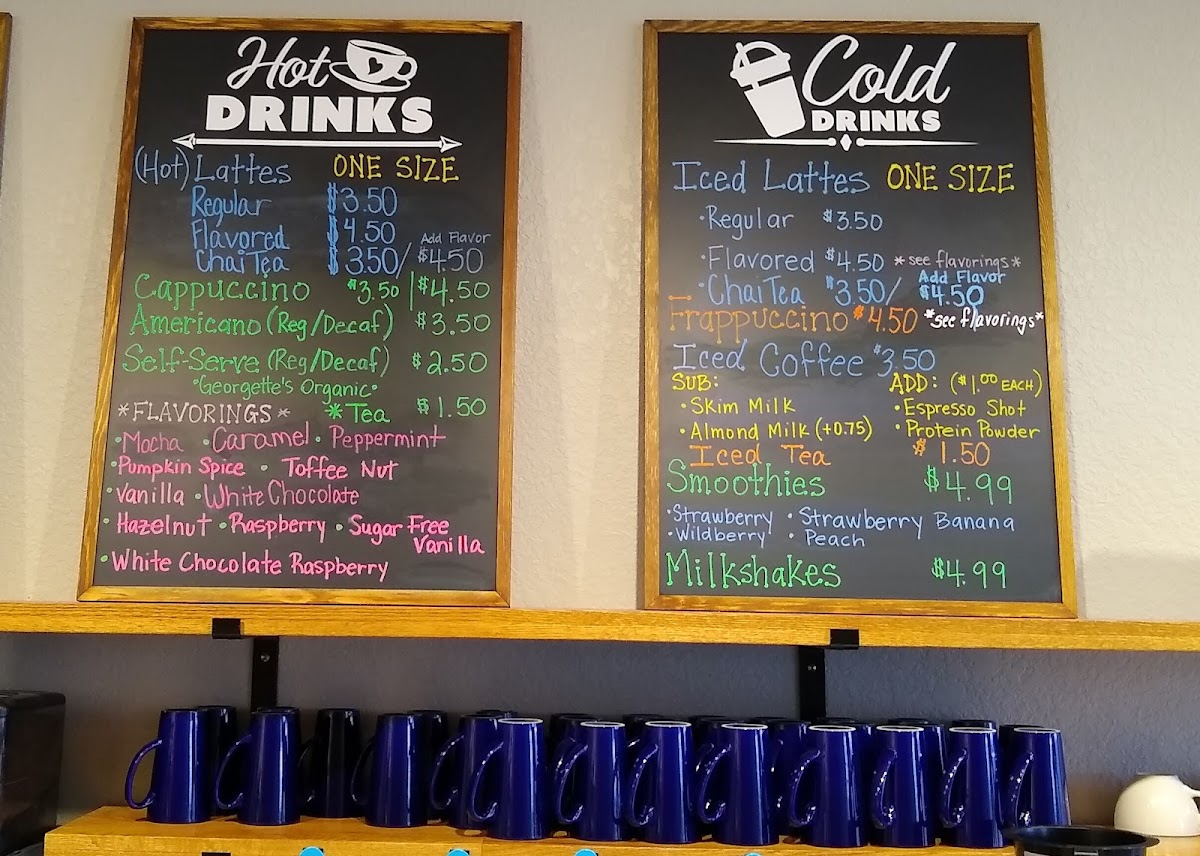 Hot
DRINKS
(Hot) Lattes ONE SIZE
Regular $3.50
Flavored $4.50
Add Flavor
Chai Tea $3.50/ $4.50
Cappuccino $3.50 | $4.50
Americano (Reg/Decaf) $3.50
Self-Serve (Reg/Decaf) $2.50
•Georgette's Organic•
*FLAVORINGS* *Tea $1.50
•Mocha •Caramel •Peppermint
•Pumpkin Spice • Toffee Nut
•Vanilla •White Chocolate
•Hazelnut •Raspberry •Sugar Free
Vanilla
•White Chocolate Raspberry
Cold
DRINKS
Iced Lattes ONE SIZE
•Regular $3.50
•Flavored $4.50 *see flavorings*
Add Flavor
•Chai Tea $3.50/ $4.50
Frappuccino $4.50 *see flavorings*
Iced Coffee $3.50
SUB: ADD: ($1.00 EACH)
•Skim Milk •Espresso Shot
•Almond Milk (+0.75) •Protein Powder
Iced Tea $1.50
Smoothies $4.99
•Strawberry •Strawberry Banana
•Wildberry •Peach
Milkshakes $4.99